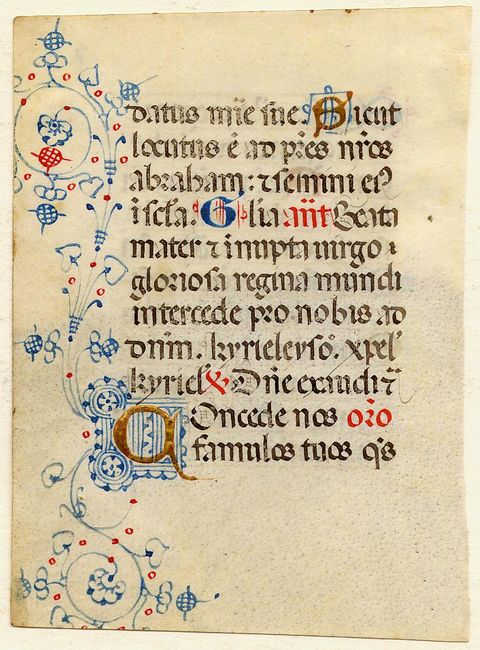 datus mīe sue. Sicut
locutus ē ad pr̄es nr̄os
abraham: ⁊ semini eiꝰ
i scl̄a. Gl̄ia an̄t Beata
mater ⁊ inupta uirgo ⁊
gloriosa regina mundi
intercede pro nobis ad
dn̄m. kyrieleysō. xpel̄
kyriel̄ ℣ Dn̄e exaudi ⁊̄
Concede nos or̄o
famulos tuos qs̄